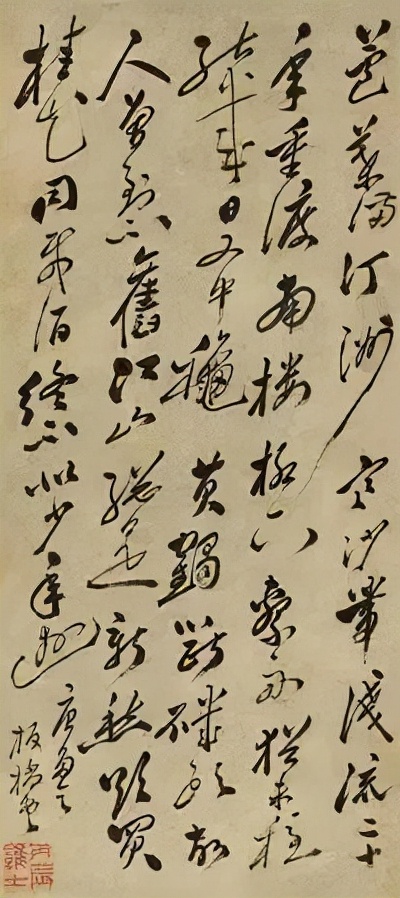 蘆葉滿汀洲寒沙帶淺流二十
年重渡南樓柳下繫舟猶未穩
能幾日又中龝黃鶴斷磯頭故
人曾到不舊江山總是新愁欲買
桂花同載酒終不似少年遊
唐多令
板橋書
丙辰進士